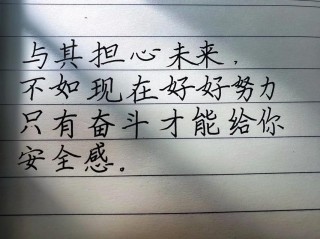 与其担心未来,
不如现在好好努力
只有奋斗才能给你
安全感。